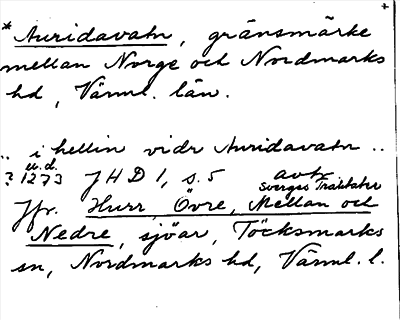 *Auridavatn, gränsmärke
mellan Norge och Nordmarks
hd, Värml. län.
.. i hellin vidr Auridavatn ..
u.d.
? 1273 JHD 1, s. 5 avtr.
Sverges Traktater
Jfr. Hurr, Övre, Mellan och
Nedre, sjöar, Töcksmarks
sn, Nordmarks hd, Värml. l.